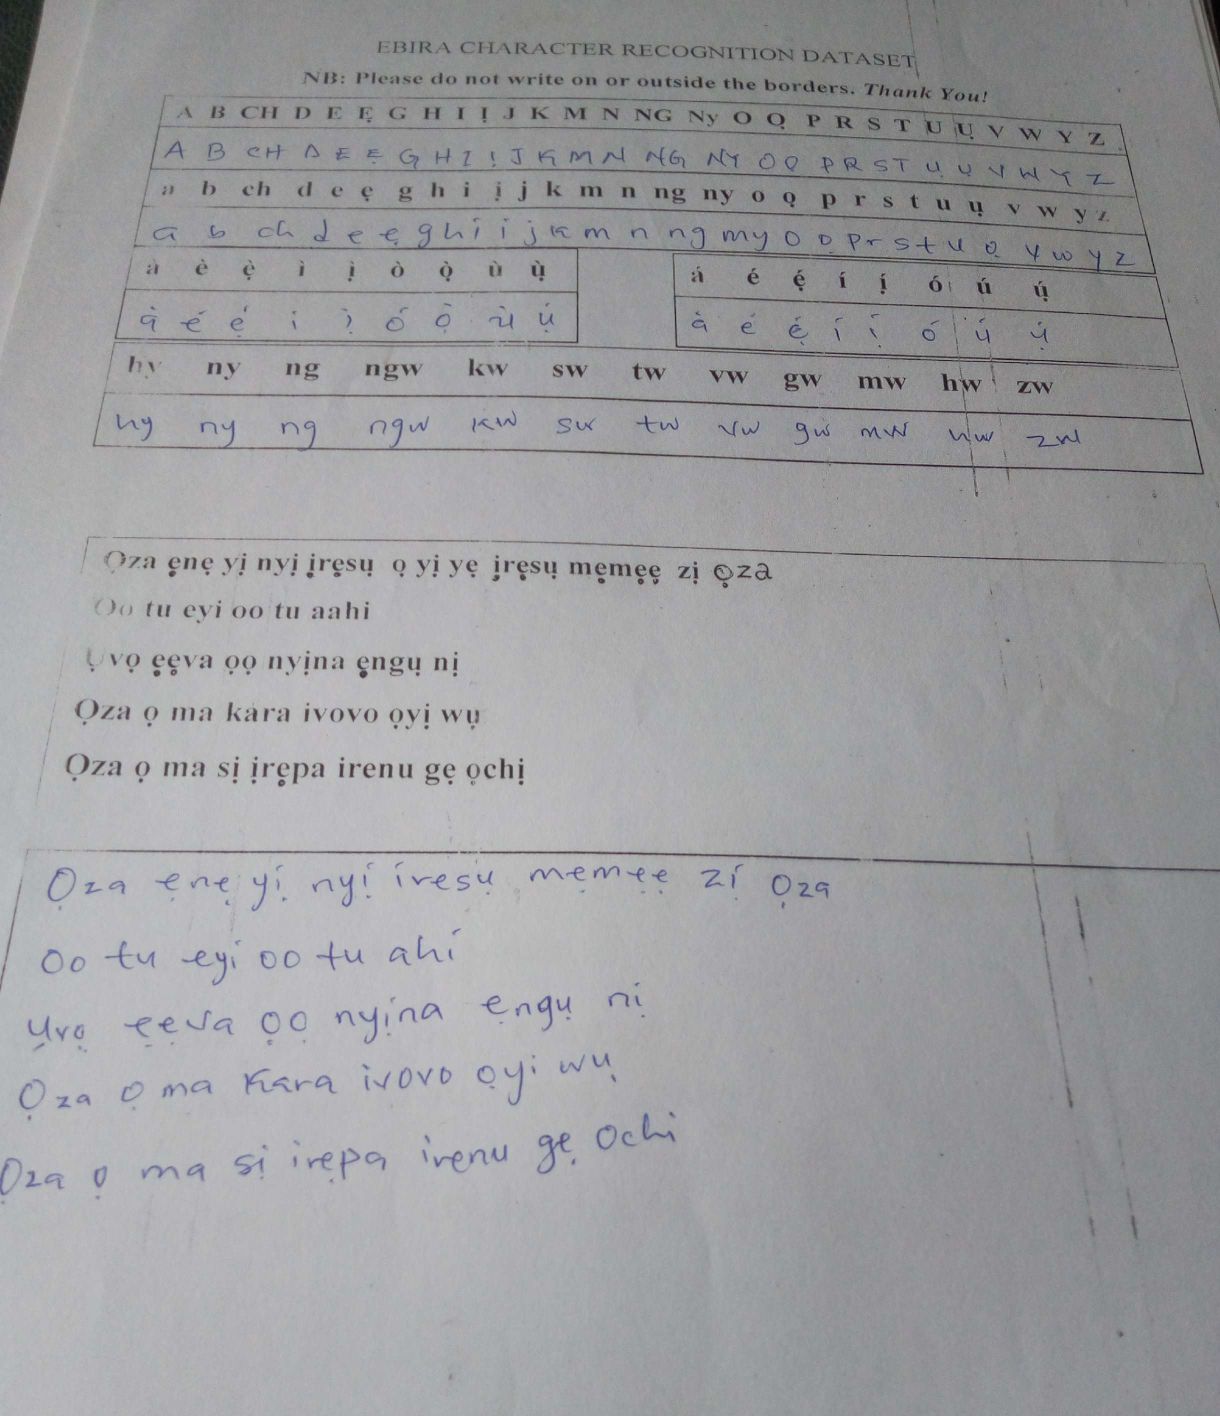 EBIRA CHARACTER RECOGNITION DATASET
NB: Please do not write on or outside the borders. Thank You!
A B CH D E Ẹ G H I Ị J K M N NG Ny O Ọ P R S T U Ụ V W Y Z
A B CH D E Ẹ G H I Ị J K M N NG NY O Ọ P R S T U Ụ V W Y Z
a b ch d e ẹ g h i ị j k m n ng ny o ọ p r s t u ụ v w y z
a b ch d e ẹ g h i i j k m n ng my o ọ p r s t u ọ v w y z
à è ẹ̀ ì ị̀ ò ọ̀ ù ụ̀ á é ẹ́ í ị́ ó ú ụ́
à é ẹ́ i ị̀ ó ọ̀ ù ụ́ à é ẹ́ í ị́ ó ú ụ́
hy ny ng ngw kw sw tw vw gw mw hw zw
hy ny ng ngw kw sw tw vw gw mw hw zw
Ọza ẹnẹ yị nyị ịrẹsụ ọ yị yẹ ịrẹsụ mẹmẹẹ zị ọza
Oo tu eyi oo tu aahi
Ụvọ ẹẹva ọọ nyịna ẹngụ nị
Ọza ọ ma kara ivovo ọyị wụ
Ọza ọ ma sị ịrẹpa irenu gẹ ọchị
Ọza ẹnẹ yị nyị iresụ mẹmẹẹ zị Ọza
Oo tu eyi oo tu ahi
Ụvọ ẹẹva ọọ nyịna ẹngụ nị
Ọza ọ ma Kara ivovo ọyi wụ
Ọza ọ ma sị irẹpa irenu gẹ Ochi